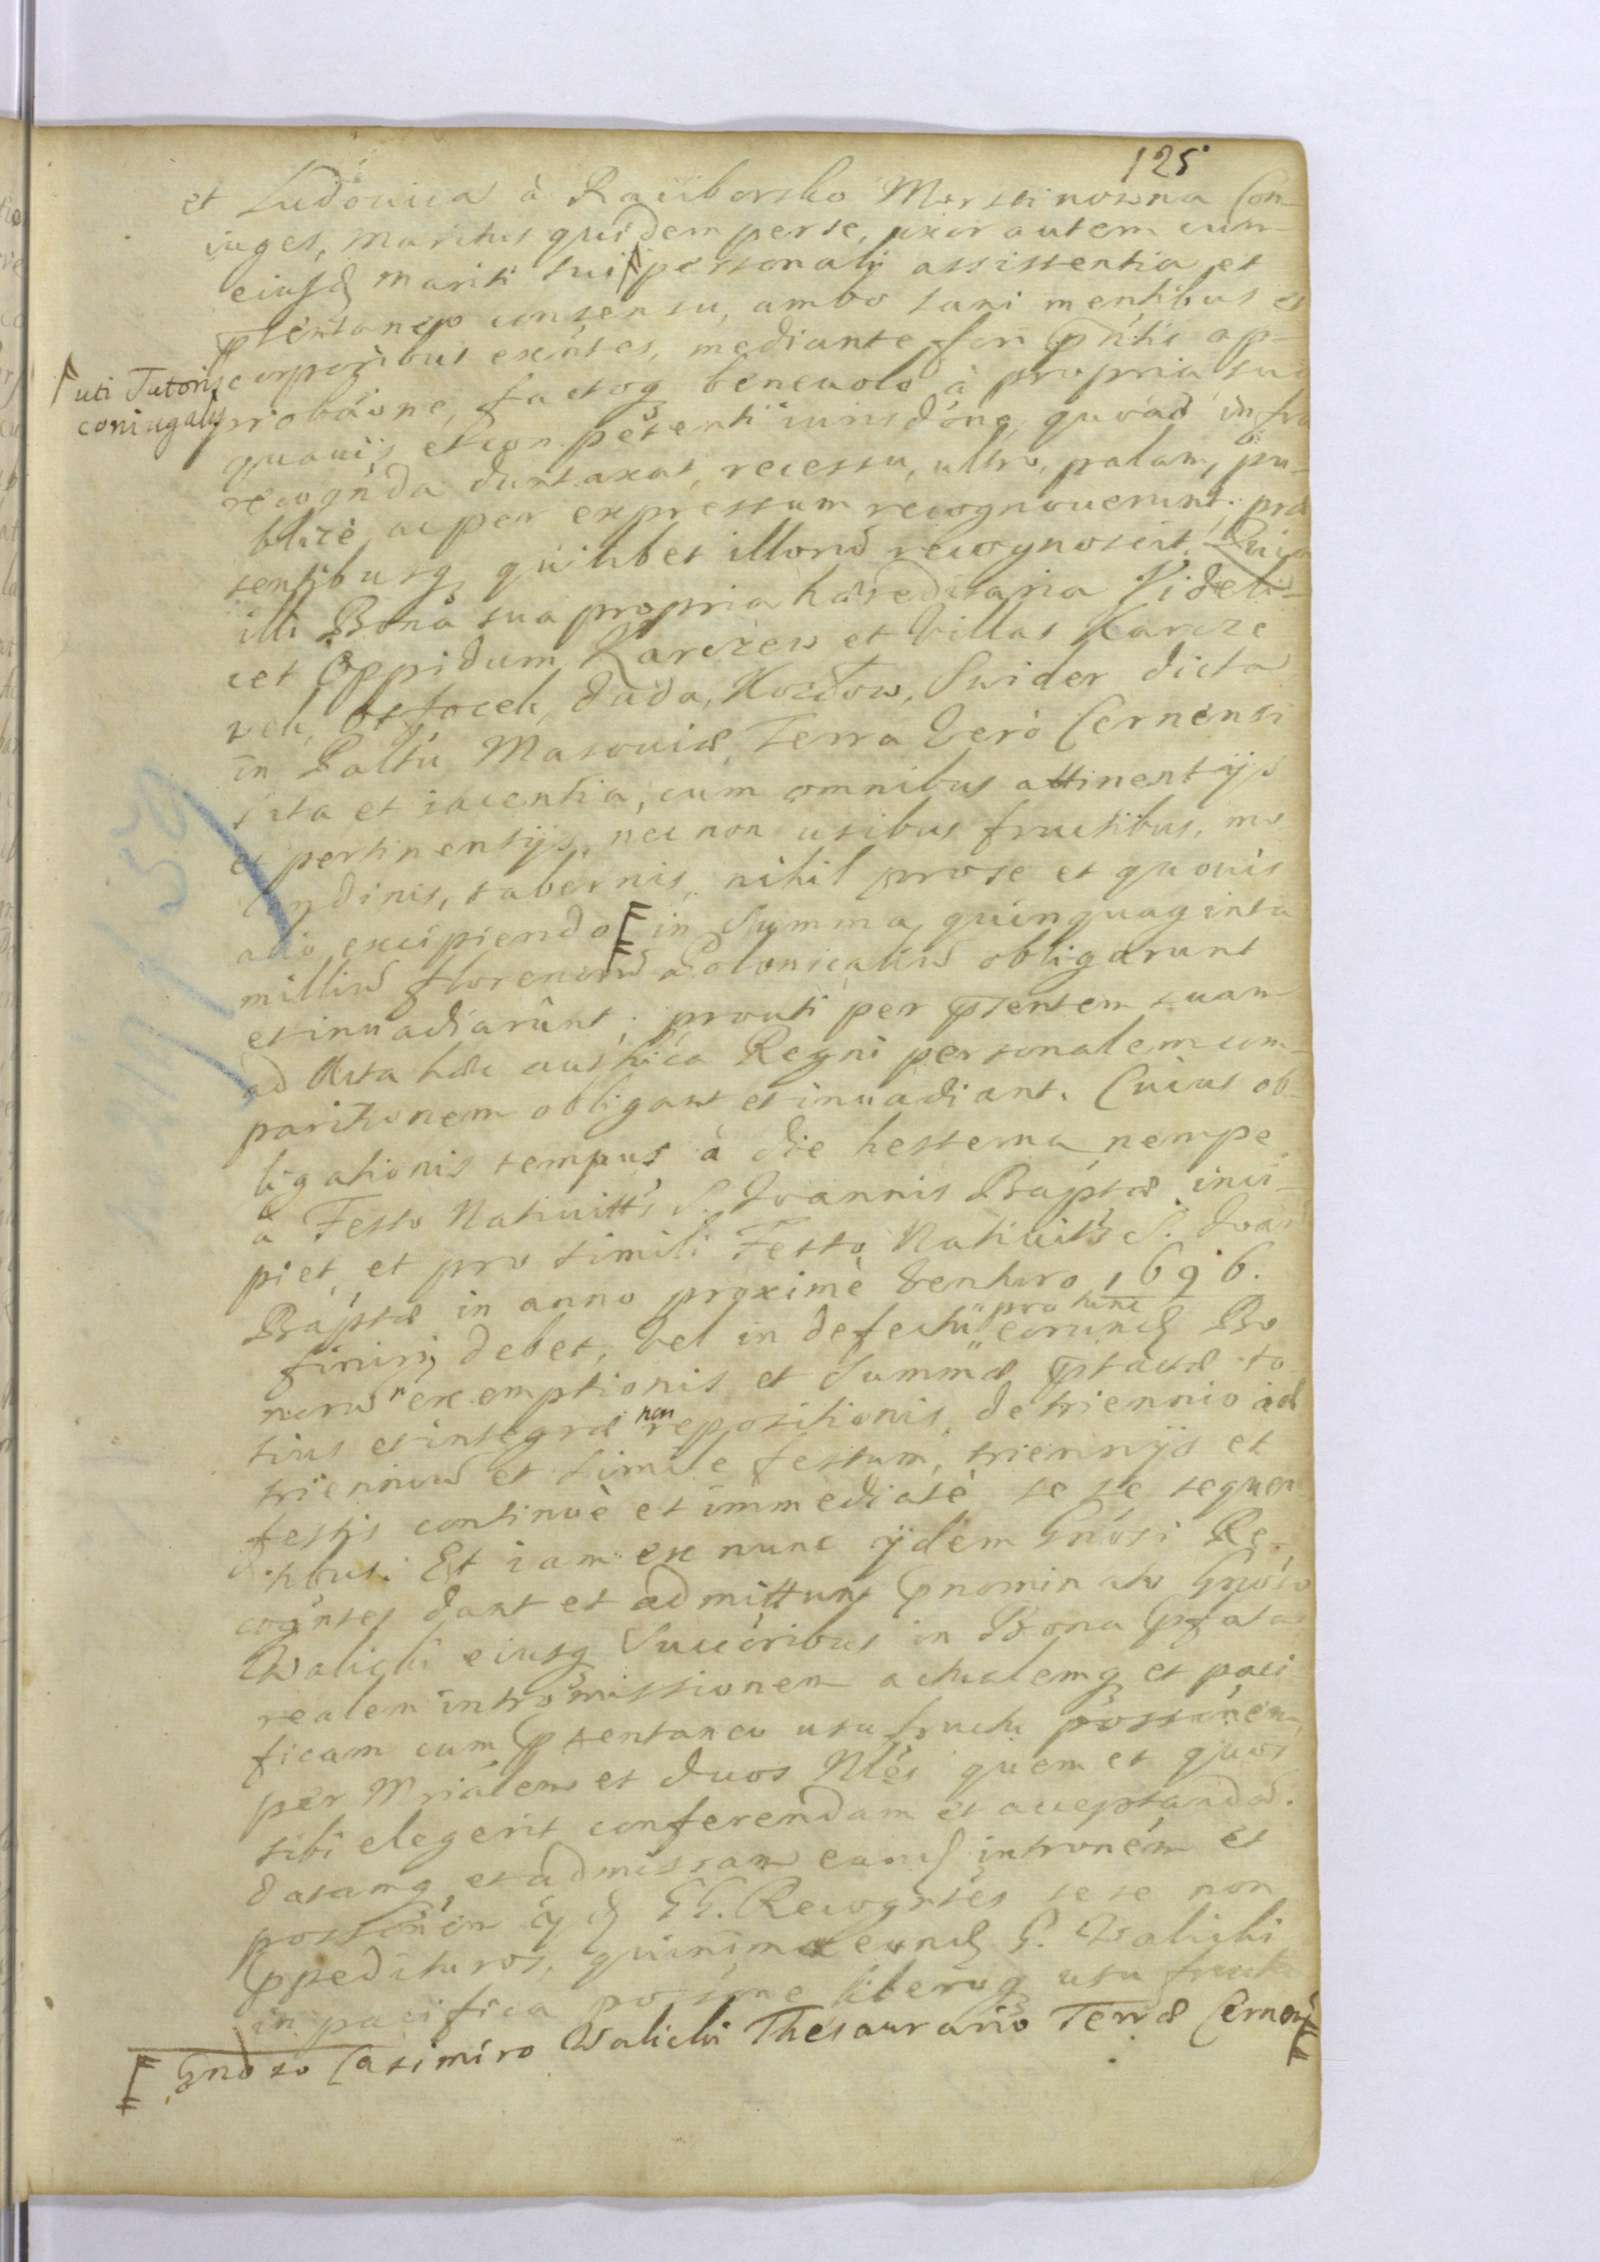 125
et Ludouica à Raciborsko Morstinowna Con-
iuges, maritus quidem per se, uxor autem cum
eiusdq mariti sui personali assistentia et
pſentaneo consensu, ambo sani mentibus et
corporibus exntes, mediante fori pntis ap-
uti Tutoris
coniugalis
probaone, factoq beneuolo à propria sua
quauis et competenti iurisdone, quoad infra
recognda duntaxat, recessu, ultro, palam, pu-
blicè, ac per expressum recognouerunt; prae
sentibusq quilibet illorū recognoscit. Quia
illi Bona sua propria haereditaria Videli-
cet Oppidum Karczew et Villas Karcze
wek, Otfocek, Duda, Swider dicta
in Paltu Masouiae, Terra verò Cernensi
sita et iacentia, cum omnibus attinentijs
et pertinentijs, nec non usibus fructibus, mo
lendinis, tabernis, nihil pro se et quouis
alio excipiendo in Summa quinquaginta
milliū florenorū Polonicaliū obligarunt
et inuadiarunt; prouti per pſentem suam
ad Acta haec authica Regni personalem com-
paritionem obligant et inuadiant. Cuius ob-
ligationis tempus à die hesterna nempe
à Festo Natiuitts S. Joannis Baptae inci-
piet, et pro simili Festo Natiuits S. Joan
Baptae in anno proximè venturo 1696.
finiri debet, vel in defectu pro tunc eorundq Bo
norū exemptionis et Summae to
tius et integrae non repositionis, de triennio ad
trienniū et simile festum, triennijs et
festis continuè et immediatè se se sequen
tibus. Et iam ex nunc ijdem Gnosi Re-
cogntes dant et admittunt pnominato Gnoso
Walicki eiusq Succoribus in Bona pfata
realem intromissionem actualemq et paci
ficam cum pſentaneo usu fructu possonem
per Mrialem et duos Nles quem et quos
sibi elegerit conferendam et acceptandā.
datamq et admissam eandq intronem et
possonem ijdq GG. Recogntes sese non
ppedituros, quinimo eundq G. Walicki
in pacifica possone liberoq usu fructu
Gnoso Casimiro Walicki Thesaurario Terrae Cernen